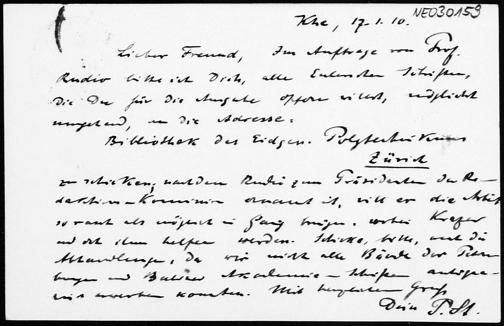 NE030153
Khe, 17.1.10.
Lieber Freund, Im Auftrage von Prof.
Rudio bitte ich Dich, alle Eulerschen Schriften,
die Du für die Ausgabe opfern willst, möglichst
umgehend, an die Adresse:
Bibliothek des Eidgen. Polytechnikums
Zürich
zu schicken; nachdem Rudio zum Präsidenten der Re-
daktions-Kommission ernannt ist, will er die Arbeit
so rasch als möglich in Gang bringen, wobei Krazer
und ich ihm helfen werden. Schicke, bitte, auch die
Abhandlungen, da wir nicht alle Bände der Peters-
burger und Berliner Akademie-Schriften antiqua-
risch erwerben konnten. Mit herzlichem Gruß
Dein P. St.